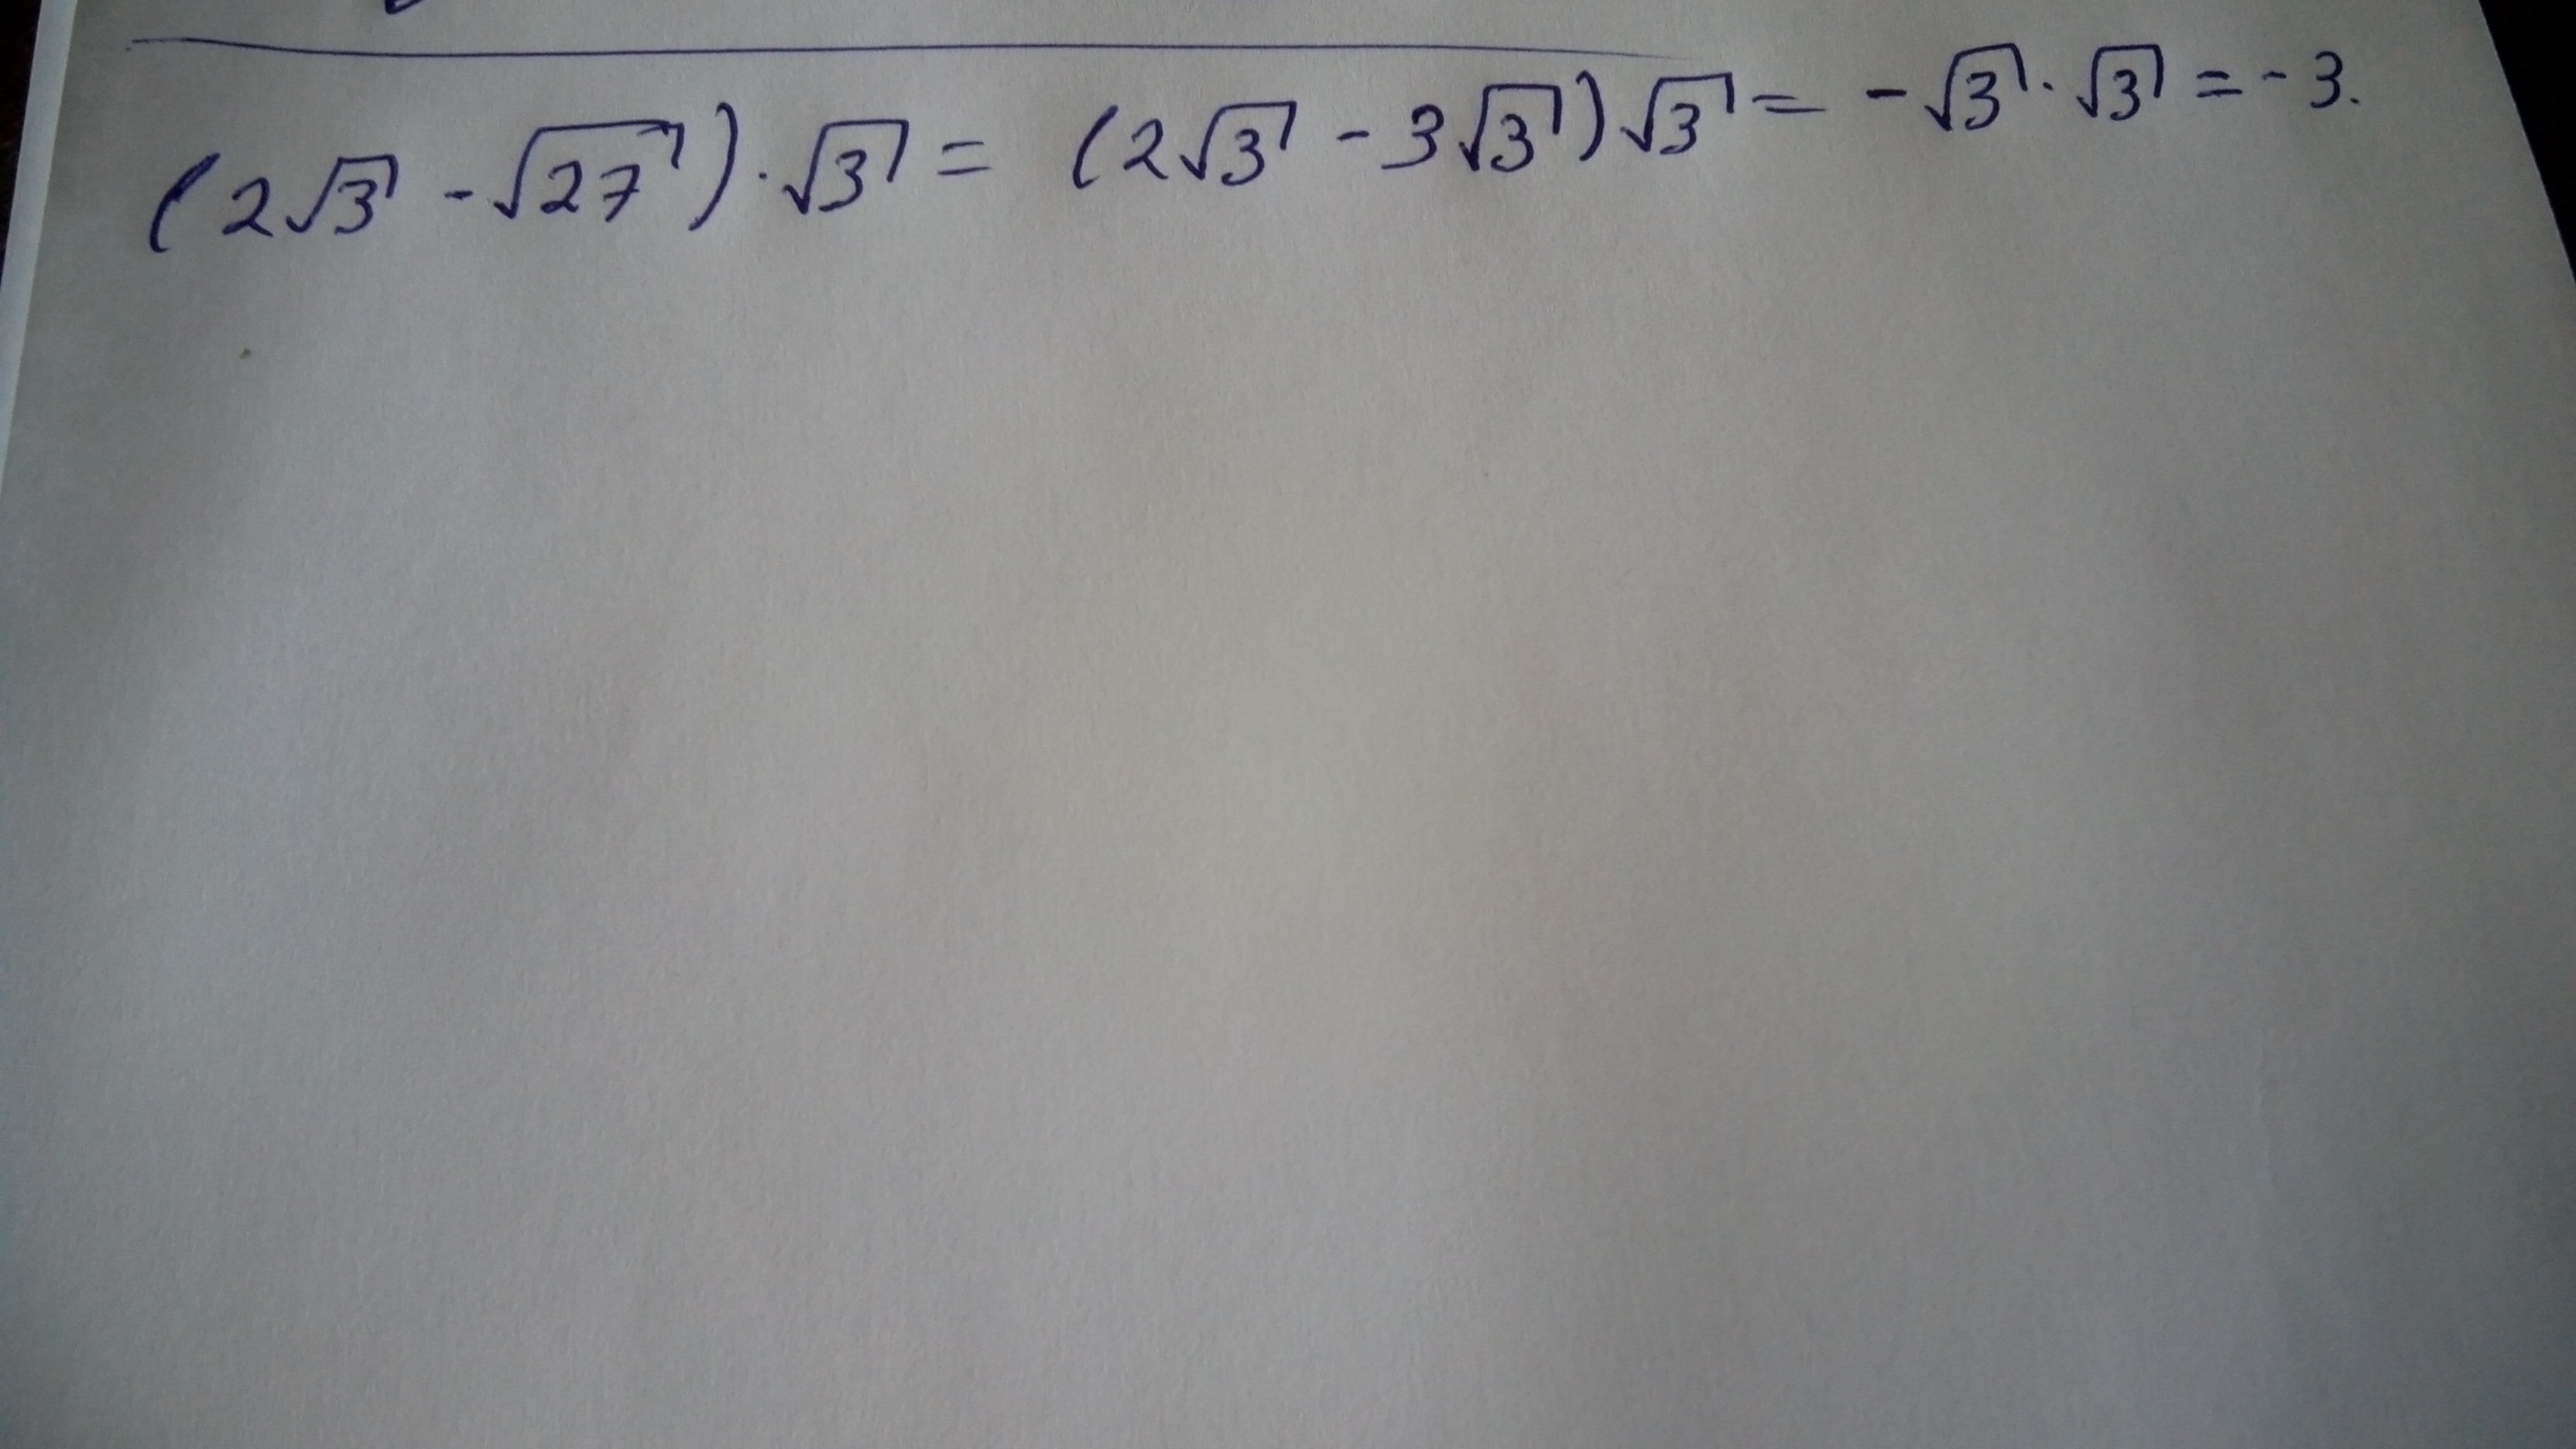 (2√3 - √27) · √3 = (2√3 - 3√3)√3 = -√3 · √3 = -3.